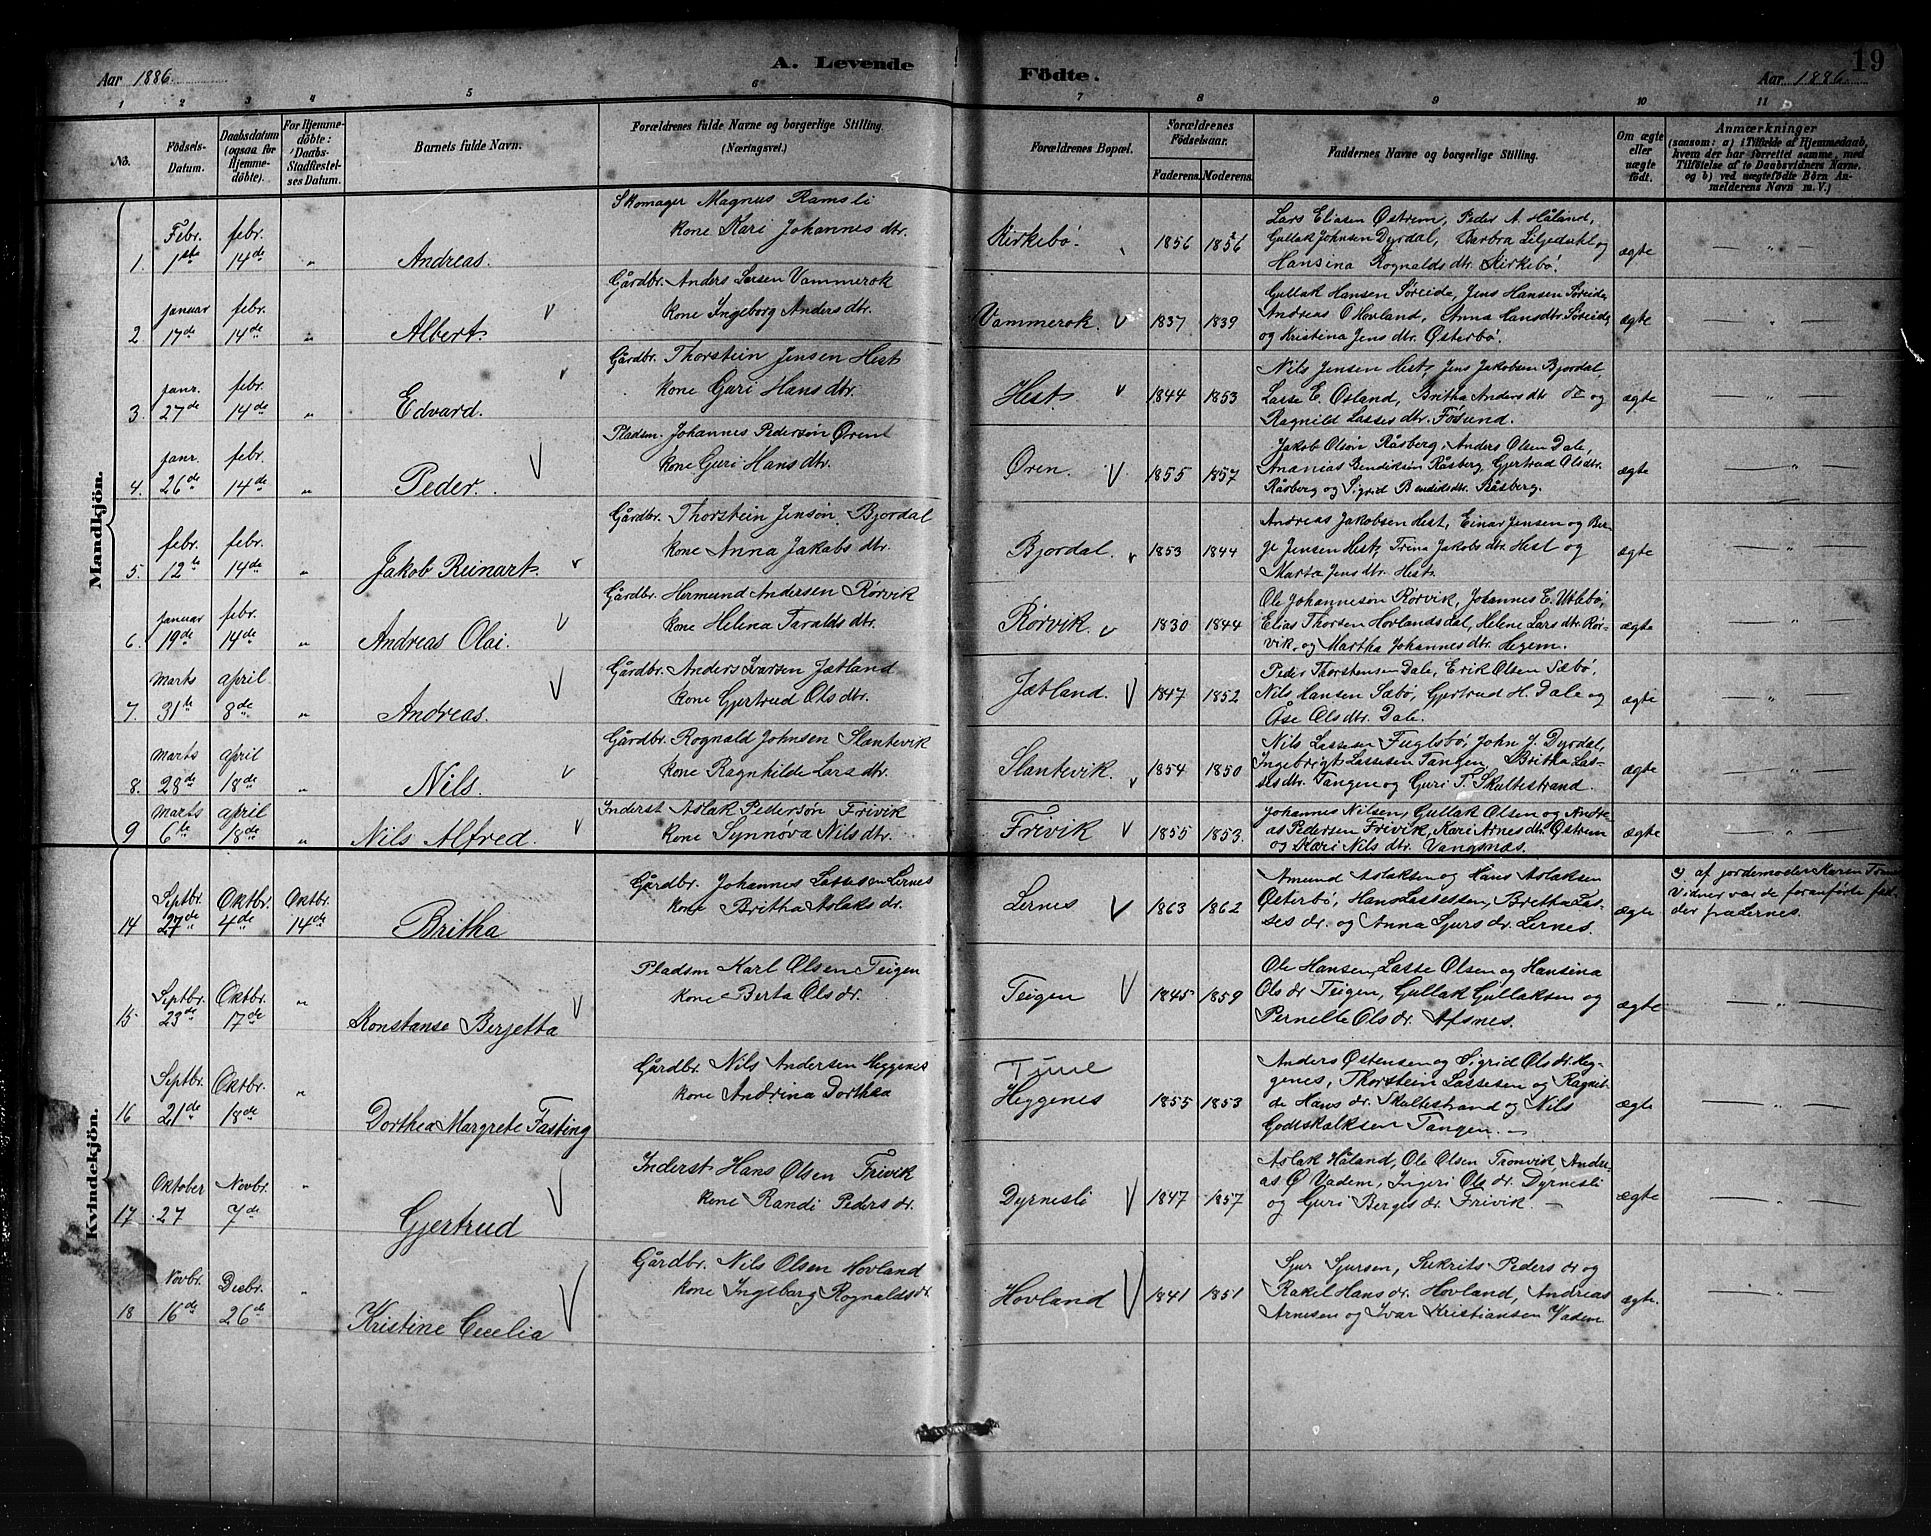 A. Levende Födte.
19
Aar 1886
Aar 1886
1 2 3 4 5 6 7 8 9 10 11
No.
Födsels-Datum.
Daabsdatum (ogsaa for Hjemme-döbte).
For Hjemme-döbte: Daabs-Stadfæstel-ses Datum.
Barnets fulde Navn.
Forældrenes fulde Navne og borgerlige Stilling. (Næringsvei.)
Forældrenes Bopæl.
Forældrenes Födselsaar.
Faderens. Moderens.
Faddernes Navne og borgerlige Stilling.
Om ægte eller uægte födt.
Anmærkninger
(saasom: a) i Tilfælde af Hjemmedaab, hvem der har forrettet samme, med Tilföielse af to Daabsvidners Navne, og b) ved uægtefödte Börn An-melderens Navn m. V.)
Mandkjön.
1. Febr. 1ste febr. 14de " Andreas.
Skomager Magnus Ramsli
kone Kari Johannes dtr.
Kirkebö. 1856 1856
Lars Eliasen Østrem, Peder A. Håland,
Gullak Johnsen Dyrdal, Barbra Liljedahl og
Hansina Rognalds dtr. Kirkebö.
ægte — " —
2 januar 17de febr. 14de " Albert.
Gårdbr. Anders Larsen Vammerok
kone Ingeborg Anders dtr.
Vammerok. 1837 1839
Gullak Hansen Søreide, Jens Hansen Søreide,
Andreas O Hovland, Anna Hansdtr. Søreide,
og Kristina Jens dtr. Østerbö.
ægte — " —
3. janr. 27de febr. 14de " Edvard.
Gårdbr. Thorstein Jensen Hest
kone Guri Hans dtr.
Hest. 1844 1853
Nils Jensen Hest, Jens Jakobsen Bjordal,
Lasse E. Østand, Britha Anders dtr do og
Ragnild Lasses dtr. Føsund.
ægte — " —
4. janr. 26de febr. 14de " Peder.
Pladsm. Johannes Pedersön Øren
kone Guri Hans dtr.
Øren. 1855 1857
Jakob Olson Råsberg, Anders Olsen Dale,
Ananias Bendiksen Råsberg, Gjertrud Olsdtr.
Råsberg og Sigrid Bendiksdtr. Råsberg.
ægte — " —
5. febr. 12te febr. 14de " Jakob Reinart.
Gårdbr. Thorstein Jensön Bjordal
kone Anna Jakobs dtr.
Bjordal. 1853 1844
Andreas Jakobsen Hest, Einar Jensen og Ber-
ge Jensen Hest, Trina Jakobs dtr. Hest og
Marta Jens dtr. Hest.
ægte — " —
6. januar 19de febr. 14de " Andreas Olai.
Gårdbr. Hermund Andersen Rörvik
kone Helena Taralds dtr.
Rörvik. 1830 1844
Ole Johannesön Rörvik, Johannes E. Utlebö,
Elias Thorsen Hovlandsdal, Helene Lars dtr. Rör-
vik, og Martha Johannes dtr. Hegem.
ægte — " —
7. Marts 31te april 8de " Andreas.
Gårdbr. Anders Ivarsen Jætland
kone Gjertrud Ols dtr.
Jætland. 1847 1852
Peder Thorstensen Dale, Erik Olsen Sæbö,
Nils Hansen Sæbö, Gjertrud H. Dale og
Åse Ols dtr. Dale.
ægte — " —
8. Marts 28de april 18de " Nils.
Gårdbr. Rognald Johnsen Slantevik
kone Ragnhilde Lars dtr.
Slantevik. 1854 1850
Nils Lassesen Fuglsbö, John J. Dyrdal,
Ingebrigt Lassesen Tangen, Britha Las-
sesdtr. Tangen og Guri T. Skultestrand.
ægte — " —
9 Marts 6te april 18de " Nils Alfred.
Inderst Aslak Pedersön Frivik
kone Synnöva Nils dtr.
Frivik 1855 1853.
Johannes Nilsen, Gullak Olsen og Andre-
as Pedersen Frivik, Kari Arnes dtr. Østrem
og Kari Nils dtr. Vangsnæs.
ægte — " —
Kvindekjön.
14 Septbr. 27de Oktbr. 4de Oktbr. 14de Britha
Gårdbr. Johannes Lassesen Lernes
kone Britha Aslaks dr.
Lernes 1863 1862
Amund Aslaksen og Hans Aslaksen
Østerbö, Hans Lassessen, Britha Las-
ses dr. og Anna Sjurs dr. Lernes.
ægte
af jordemoder Karen
Vidner var de foranförte fad-
der fra Lernes.
15 Septbr. 23de Oktbr. 17de " Konstanse Berjetta
Pladsm Karl Olsen Teigen
kone Berta Ols dr.
Teigen 1845 1859
Ole Hansen, Lasse Olsen og Hansina
Ols dr Teigen, Gullak Gullaksen og
Pernelle Ols dr. Afsnes.
ægte — " —
16 Septbr. 21de Oktbr. 18de " Dorthea Margrete Fasting
Gårdbr. Nils Andersen Heggenes
kone Andrina Dorthea
Tune
Heggenes 1855 1853
Anders Østensen og Sigrid Ols dr. Heg-
genes, Thorstein Lassesen og Ragnil-
da Hans dr. Skultestrand og Nils
Godtskalksen Tangen. —
ægte — " —
17 Oktober 27 Novbr. 7de " Gjertrud
Inderst Hans Olsen Frivik
kone Randi Peders dr.
Dyrnesli 1847 1857
Aslak Håland, Ole Olsen Tronvik, Andre-
as O Vadem, Ingeri Ols dr. Dyrnesli
og Guri Berges dr. Frivik. —
ægte — " —
18 Novbr. 16de Decbr. 26de " Kristine Cecelia
Gårdbr. Nils Olsen Hovland
kone Ingeborg Rognalds dr.
Hovland 1841 1851
Sjur Sjursen, Sukrits Peders dr og
Rakel Hans dr. Hovland, Andreas
Arnesen og Ivar Kristiansen Vadem
ægte. — " —